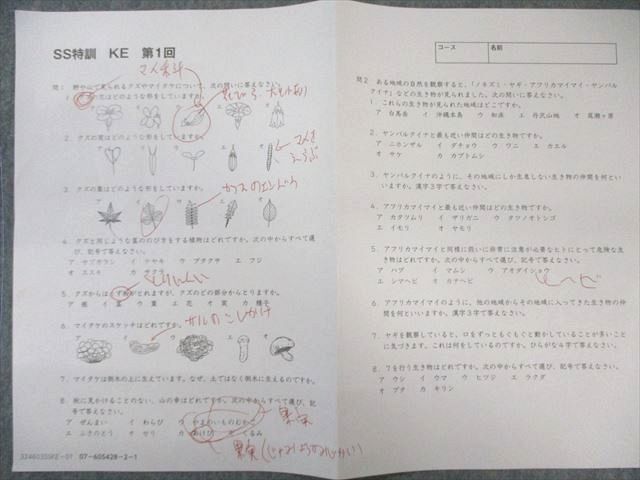 SS特訓 KE 第1回
マメ科
問1 野や山で見られるクズやマイタケについて、次の問いに答えなさい。
1. クズの花はどのような形をしていますか。
ア イ ウ エ オ
2. クズの実はどのような形をしていますか。
ア イ ウ エ オ
3. クズの葉はどのような形をしていますか。
カラスのエンドウ
ア イ ウ エ オ
4. クズと同じような茎ののび方をする植物はどれですか。次の中からすべて選び、記号で答えなさい。
ア ヤブガラシ イ ケヤキ ウ ブタクサ エ フジ
オ ススキ カ サクラ
5. クズからはくず粉がとれますが、クズのどの部分からとりますか。
ア 根 イ 茎 ウ 葉 エ 花 オ 実 カ 種子
サルのこしかけ
6. マイタケのスケッチはどれですか。
ア イ ウ エ オ
7. マイタケは倒木の上に生えています。なぜ、土ではなく倒木に生えるのですか。
8. 秋に見かけることのない、山の幸はどれですか。次の中からすべて選び、記号で答えなさい。
ア ぜんまい イ わらび ウ やまのいものむかご
エ ふきのとう オ セリ カ あけび キ くるみ
果実
果実
324603SSKE-01 07-605428-2-1
コース 名前
問2 ある地域の自然を観察すると、「ノネズミ・ヤギ・アフリカマイマイ・ヤンバルクイナ」などの生き物が見られました。次の問いに答えなさい。
1. これらの生き物が見られた地域はどこですか。
ア 白馬岳 イ 沖縄本島 ウ 知床 エ 丹沢山地 オ 尾瀬ヶ原
2. ヤンバルクイナと最も近い仲間はどの生き物ですか。
ア ニホンザル イ ダチョウ ウ ワニ エ カエル
オ サケ カ カブトムシ
3. ヤンバルクイナのように、その地域にしか生息しない生き物の仲間を何といいますか。漢字3字で答えなさい。
4. アフリカマイマイと最も近い仲間はどの生き物ですか。
ア カタツムリ イ ザリガニ ウ タツノオトシゴ
エ イモリ オ ヤモリ
5. アフリカマイマイと同様に扱いに非常に注意が必要なヒトにとって危険な生き物はどれですか。次の中からすべて選び、記号で答えなさい。
ア ハブ イ マムシ ウ アオダイショウ
エ シマヘビ オ カナヘビ
ヘビ
6. アフリカマイマイのように、他の地域からその地域に入ってきた生き物の仲間を何といいますか。漢字3字で答えなさい。
7. ヤギを観察していると、口をずっともぐもぐと動かしていることが多いことに気づきます。これは何をしているのですか。ひらがな4字で答えなさい。
8. 7を行う生き物はどれですか。次の中からすべて選び、記号で答えなさい。
ア ウシ イ ウマ ウ ヒツジ エ ラクダ
オ ブタ カ キリン